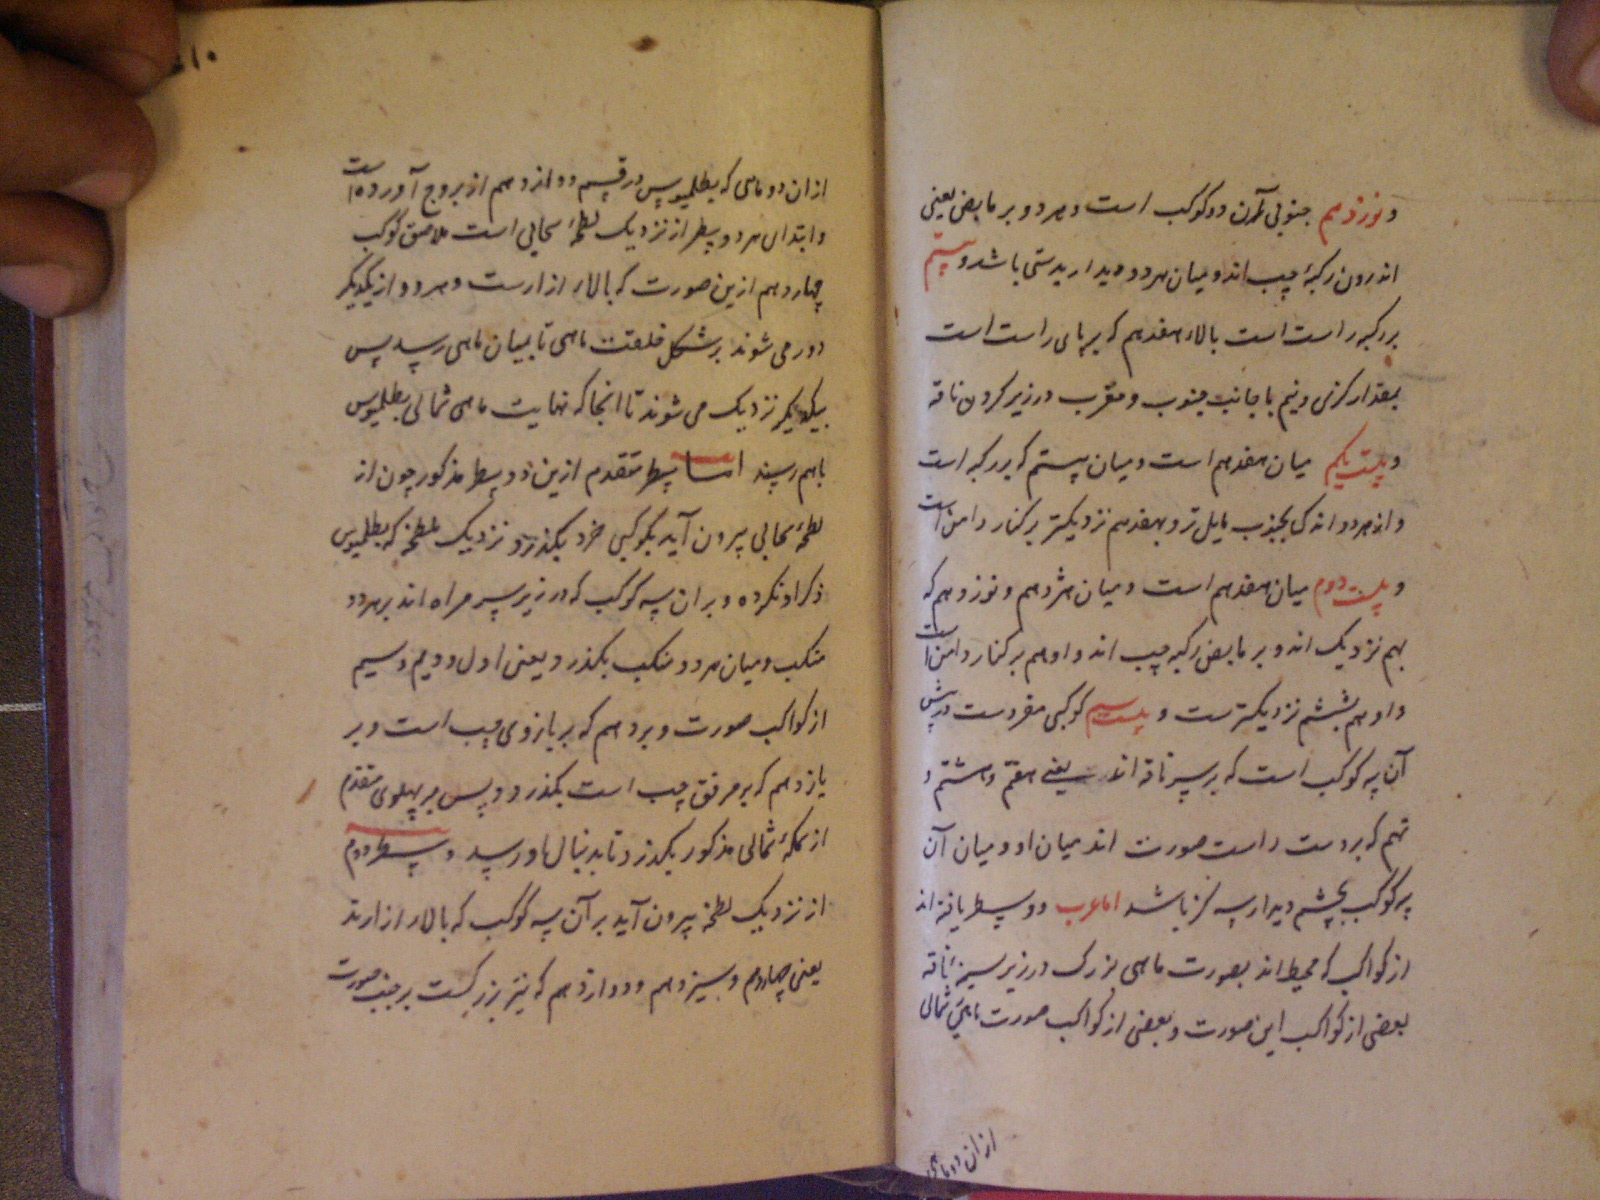 و نوزدهم جنوبی آن دو کوکب است و هر دو بر مابض یعنی
اندرون رکبهٔ چپ اند و میان هر دو دیدار بدستی باشد و بیستم
بر رکبه راست است بالاء هفدهم که بر پای راست است
بمقدار کزی و نیم با جانب جنوب و مغرب در زیر کردن ناقه
و بیست یکم میان هفدهم است و میان بیستم که بر رکبه است
و از هر دو اندکی بجنوب مایل تر و بهفدهم نزدیکتر بر کنار دامن است
و بیست دوم میان هفدهم است و میان هژدهم و نوزدهم که
بهم نزدیک اند و بر مابض رکبه چپ اند و او هم بر کنار دامن است
و او هم بششم نزدیکترست و بیست سیم کوکبی مفردست در پیش
آن سه کوکب است که بر سر ناقه اند یعنی هفتم و هشتم و
نهم که بر دست راست صورت اند میان او و میان آن
سه کوکب بچشم دیدار سه کز باشد اما عرب دو سطر یافته اند
از کواکب که محیط اند بصورت ماهی بزرک در زیر سینهٔ ناقه
بعضی از کواکب این صورت و بعضی از کواکب صورت ماهی شمالی
از ان دو ماهی
از ان دو ماهی که بطلمیوس در قسم دوازدهم از بروج آورده است
و ابتداء هر دو سطر از نزدیک لطخهٔ سحابی است ملاصق کوکب
چهاردهم ازین صورت که بالاء ازارست و هر دو از یکدیکر
دور می شوند بر شکل خلقت ماهی تا بمیان ماهی رسد پس
بیکدیکر نزدیک می شوند تا انجا که نهایت ماهی شمالی بطلمیوس
باهم رسند اما سطر متقدم ازین دو سطر مذکور چون از
لطخهٔ سحابی بیرون آید بکوکبی خرد بکذرد و نزدیک بلطخه که بطلمیوس
ذکر او نکرده و بر ان سه کوکب که در زیر سر مراه اند بر هر دو
منکب و میان هر دو منکب بکذرد یعنی اول و دویم و سیم
از کواکب صورت و بر دهم که بر بازوی چپ است و بر
یازدهم که بر مرفق چپ است بکذرد و پس بر پهلوی متقدم
از سمکهٔ شمالی مذکور بکذرد تا بدنبال او رسد و سطر دوم
از نزدیک لطخه بیرون آید بر آن سه کوکب که بالاء ازارند
یعنی چهاردهم و سیزدهم و دوازدهم که نیر بزرکست بر جنب صورت